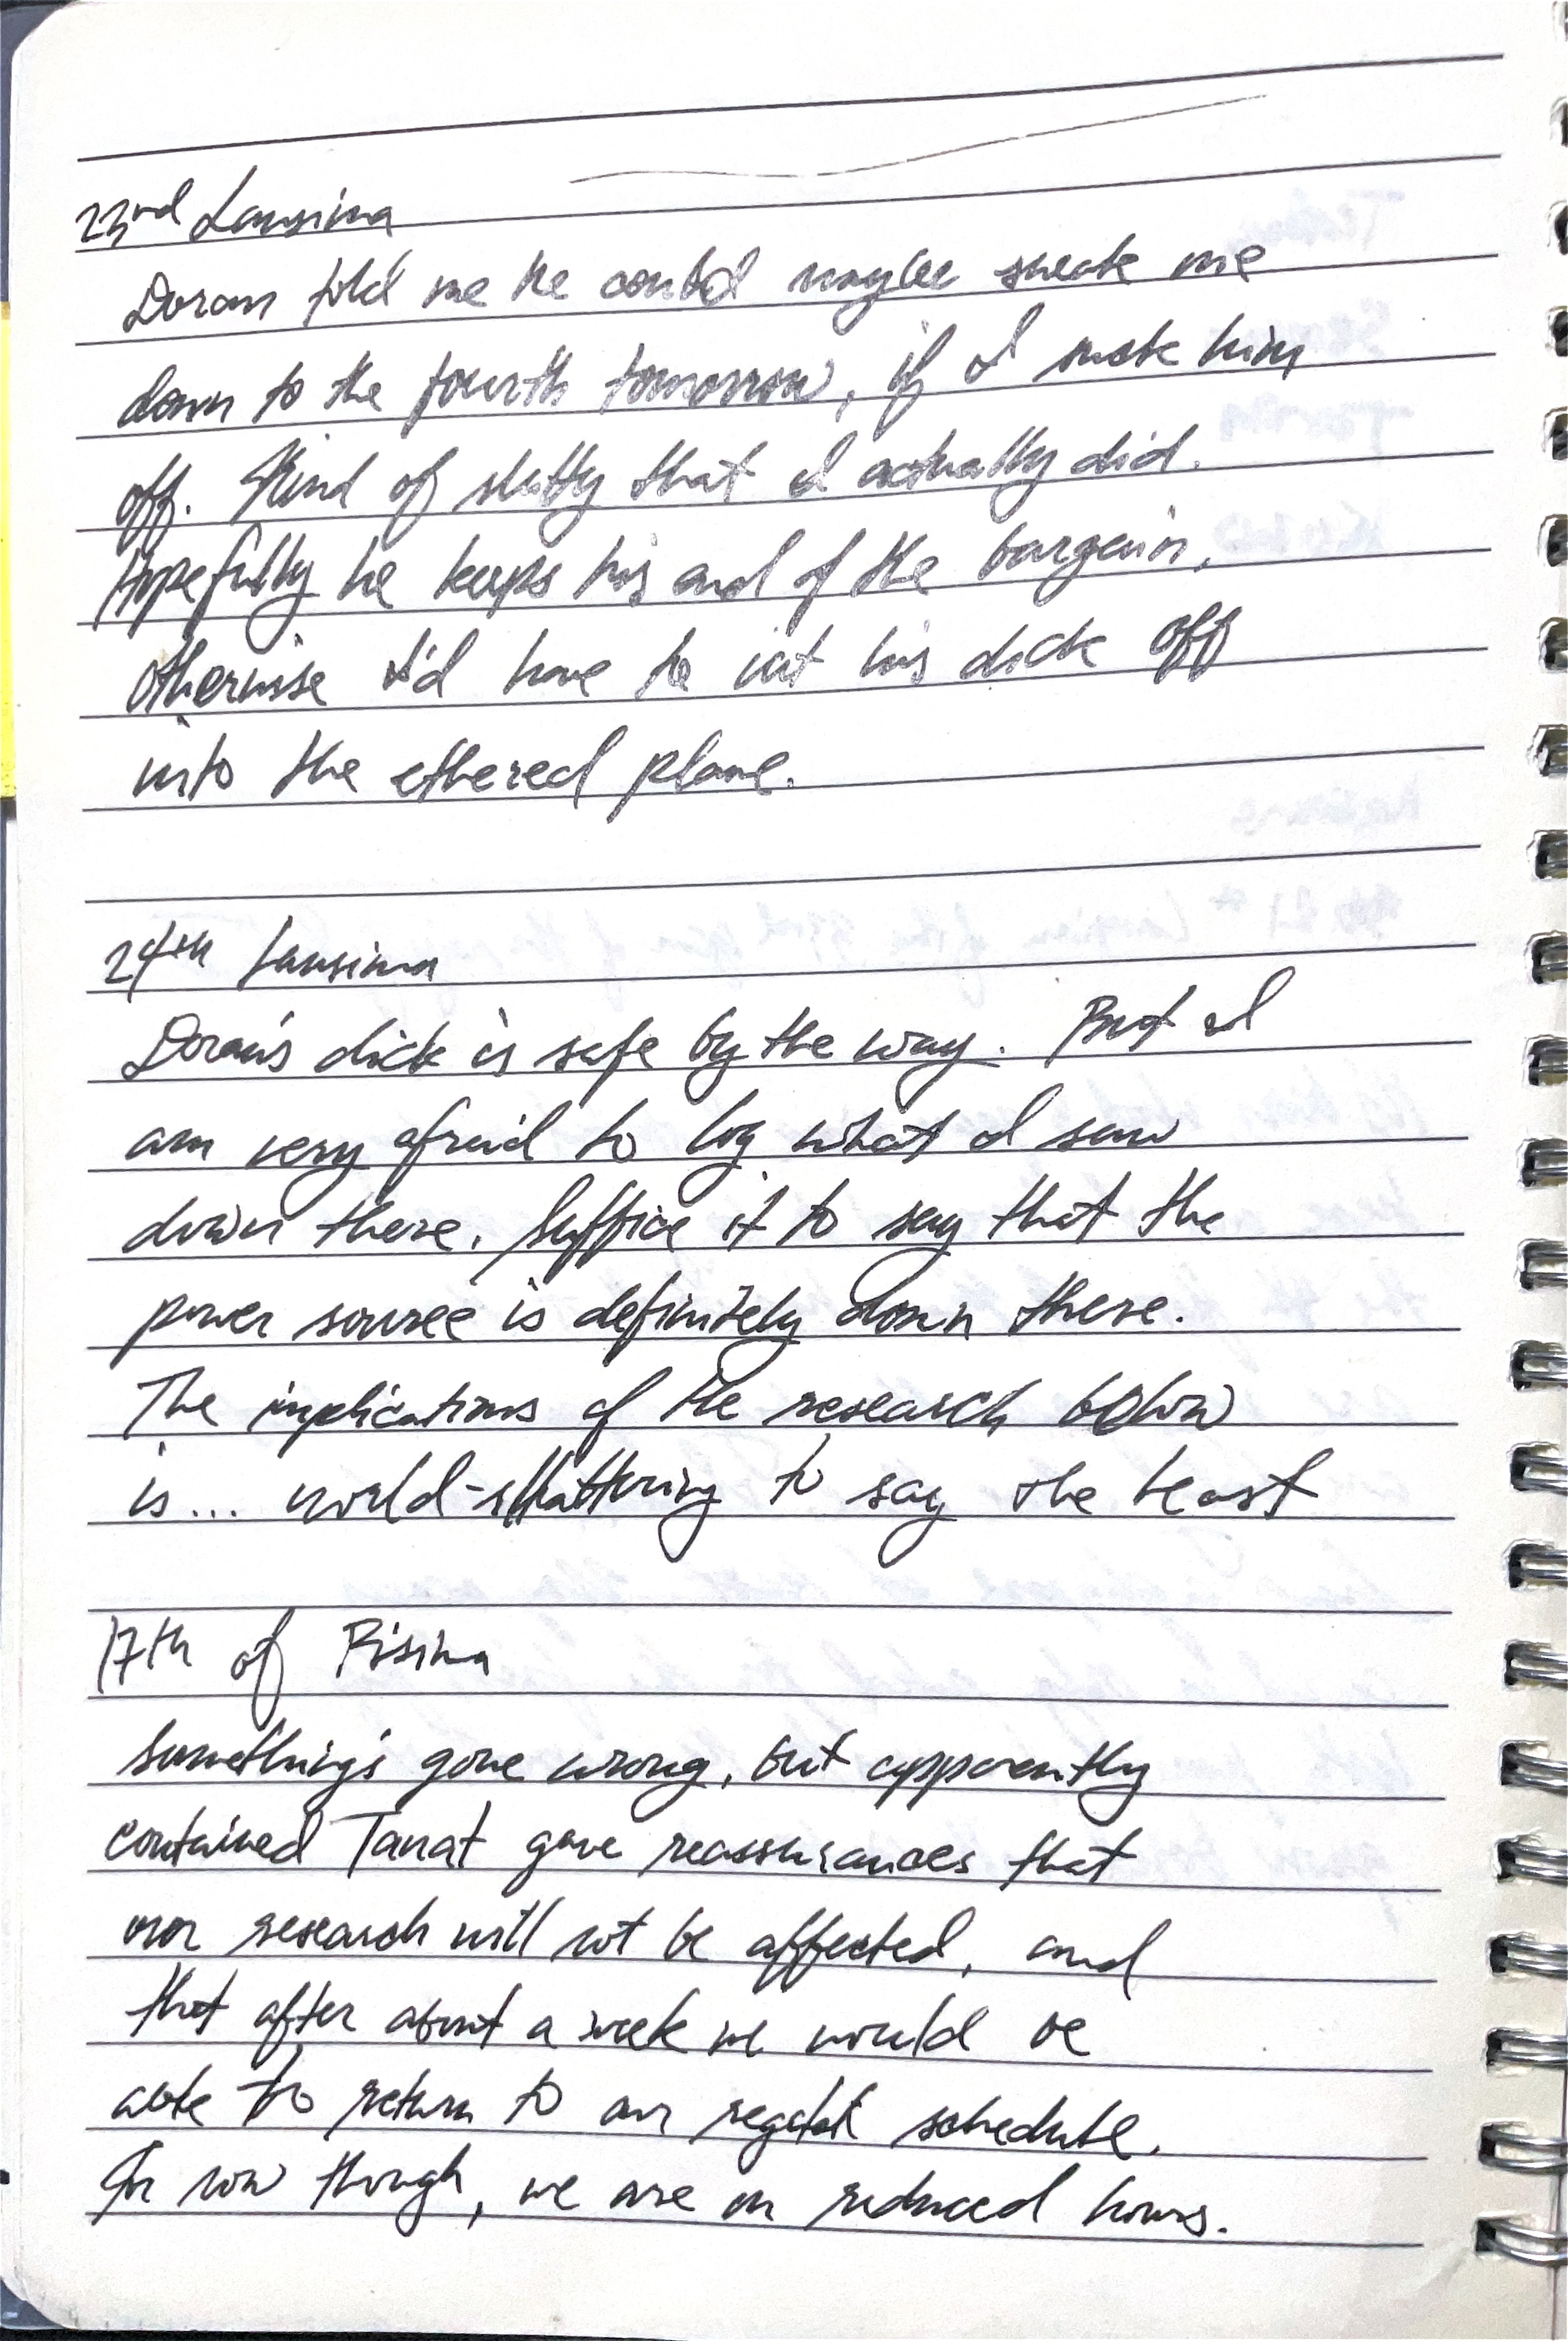 23nd Lansima
Doran told me he could maybe sneak me
down to the fourth tomorrow, if I suck him
off. Kind of slutty that I actually did.
Hopefully he keeps his end of the bargain,
otherwise I'd have to cut his dick off
into the ethereal plane.
24th Lansima
Doran's dick is safe by the way. But I
am very afraid to log what I saw
down there. Suffice it to say that the
power source is definitely down there.
The implications of the research below
is... world-shattering to say the least
17th of Pisima
Something's gone wrong, but apparently
contained Tanat gave reassurances that
our research will not be affected, and
that after about a week we would be
able to return to our regular schedule.
For now though, we are on reduced hours.